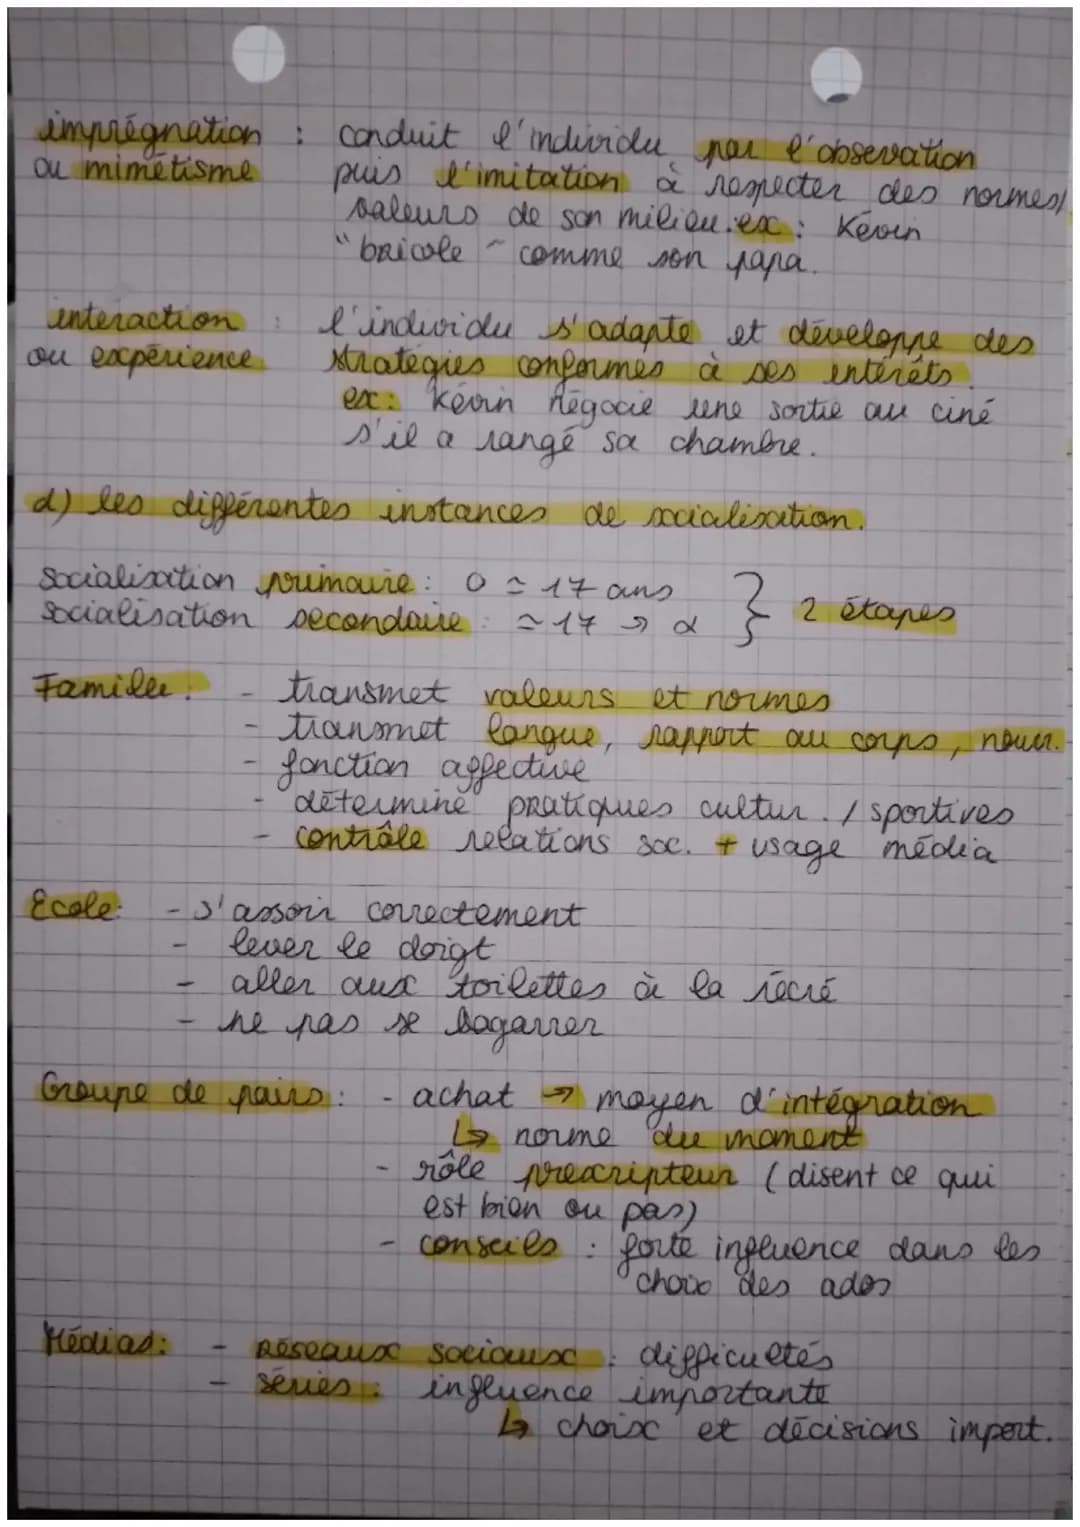 imprégnation : conduit l'individu par l'observation
ou mimétisme puis l'imitation à respecter des normes/
valeurs de son milieu. ex : Kévin
"bricole" comme son papa.
interaction : l'individu s'adapte et développe des
ou expérience stratégies conformes à ses intérêts.
ex : Kévin négocie une sortie au ciné
s'il a rangé sa chambre.
d) les différentes instances de socialisation.
Socialisation primaire : 0 ≃ 17 ans
socialisation secondaire : ≃ 17 → α } 2 étapes
Famille : - transmet valeurs et normes
- transmet langue, rapport au corps, nour.
- fonction affective
- détermine pratiques cultur. / sportives
- contrôle relations soc. + usage média
Ecole : - s'assoir correctement
- lever le doigt
- aller aux toilettes à la récré
- ne pas se bagarrer
Groupe de pairs : - achat → moyen d'intégration
↳ norme du moment
- rôle prescripteur (disent ce qui
est bien ou pas)
- conseils : forte influence dans les
choix des ados
Médias : - Réseaux sociaux : difficultés
- séries : influence importante
↳ choix et décisions import.